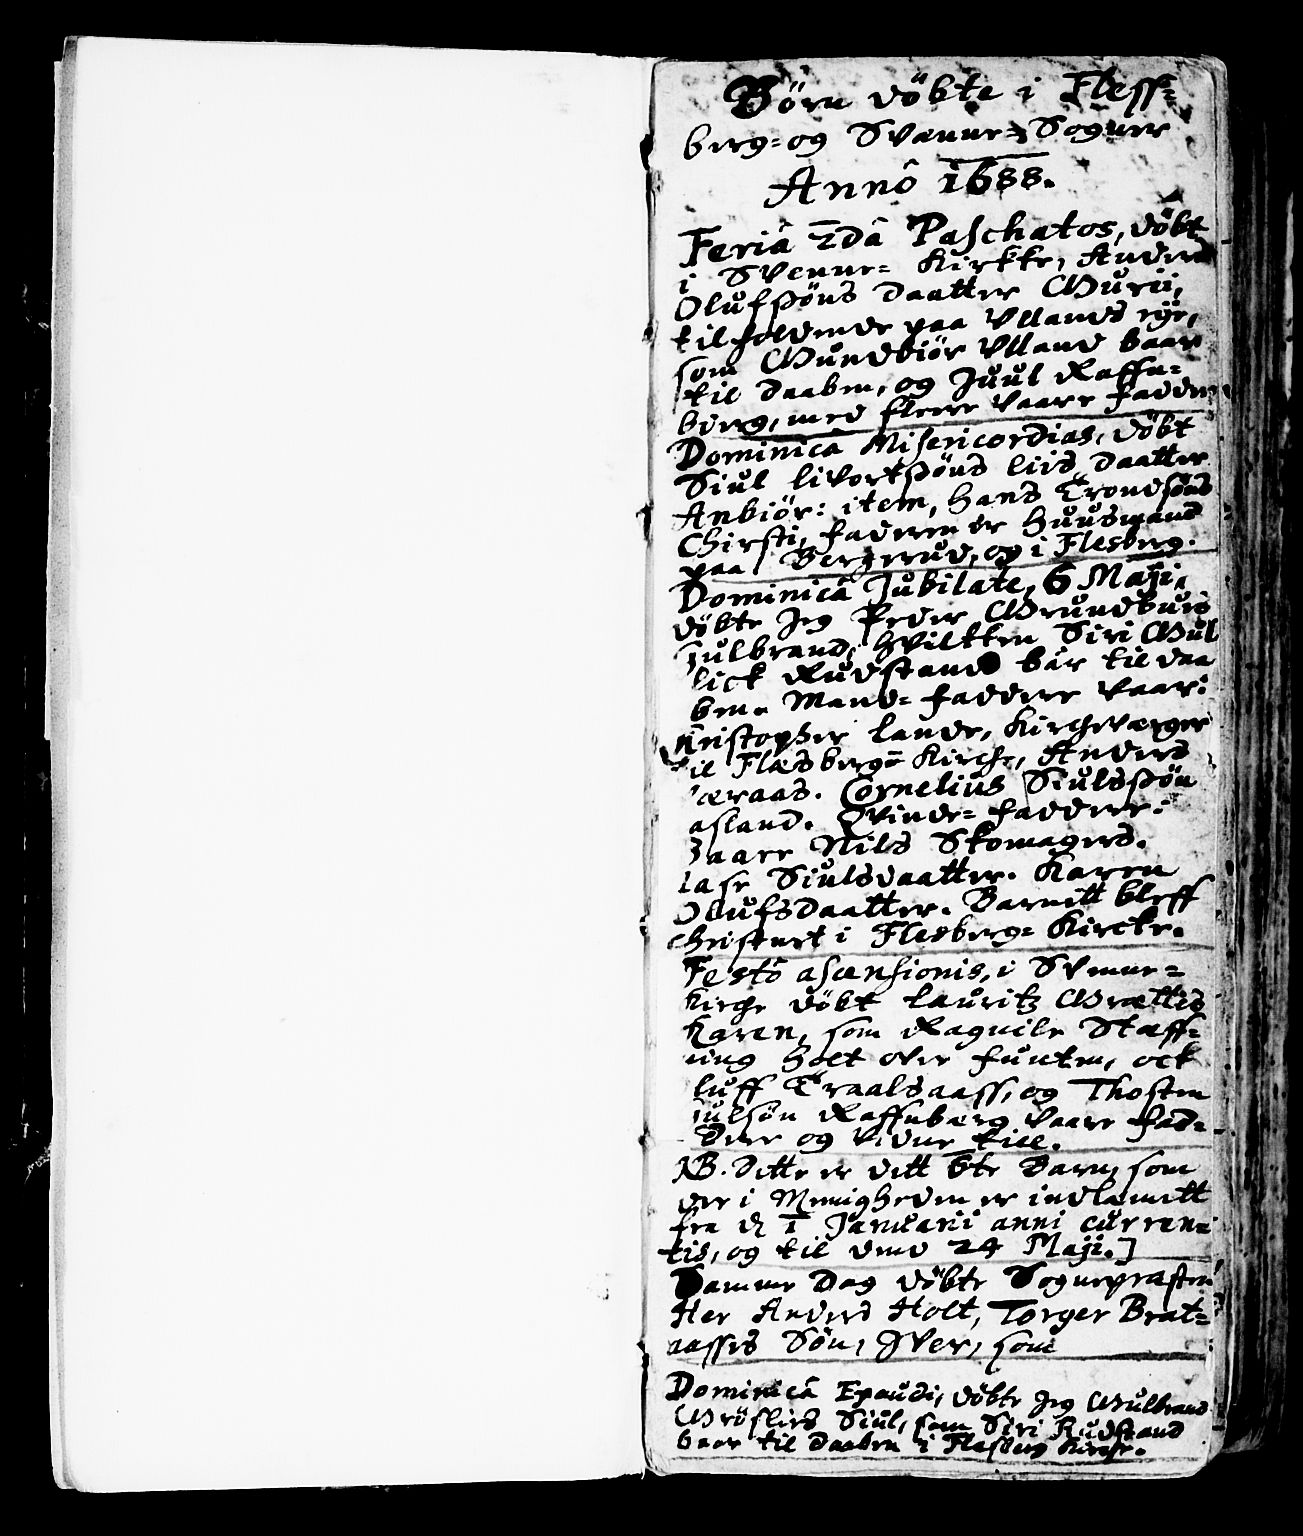 Börn döbte i Fless-
berg- og Svenne- Sogner
Annô 1688.
Feriâ 2dâ Paschatos, döbt
i Svenne- Kirkke, Anders
Olufssöns daatter Gurii,
til holdende paa Ullands eye,
som Gundbiör Ulland baar
til daaben, og Juul Raffn-
berg, med flere vaare faddere
Dominicâ Misericordias, döbt
Siul livortssöns liis daatter
Anbiör: item, Hans Trondsöns
Chirsti, faderen er huusmand
paa Bergerud, og i Flesberg.
Dominicâ Jubilate, 6 Maji,
döbte Jeg Peder Grundbuis
Gulbrand, hvilkken Siri Gul
lick Rudstand bar til daa
ben. Mand- faddere vaar:
Christopher lande, Kircheværger
til Flæsberg= Kirche, Anders
æraas. Cornelius Siulssön
Aasland. Qvinde- faddere:
vaare Nils Skomagers.
Aase Siulsdaatter. Karen
Olufsdaatter. Barnitt bleff
christnet i Flesberg- Kircke.
Festô ascensionis, i Svenne-
Kirche döbt lauritz Grættes
Karen, som Ragnile Stæff-
ning holt over funten, ock
luff Traalsaass, og Thosten
Julsön Raffnberg vaare fad-
dere og vidne till.
NB. Dette er dett 6te Barn, som
der i Menigheden er indlemett
fra d 1 Januarii anni curren-
tis, og til dend 24 Maji.]
Samme Dag döbte Sognepræsten
Her Anders Holt, Torger Brat-
aasses Sön, Iver, som
Dominicâ Exaudi, döbte Jeg Gulbrand
Gröslies Siul, som Siri Rudstand
baar til daaben i Flesberg Kirche.